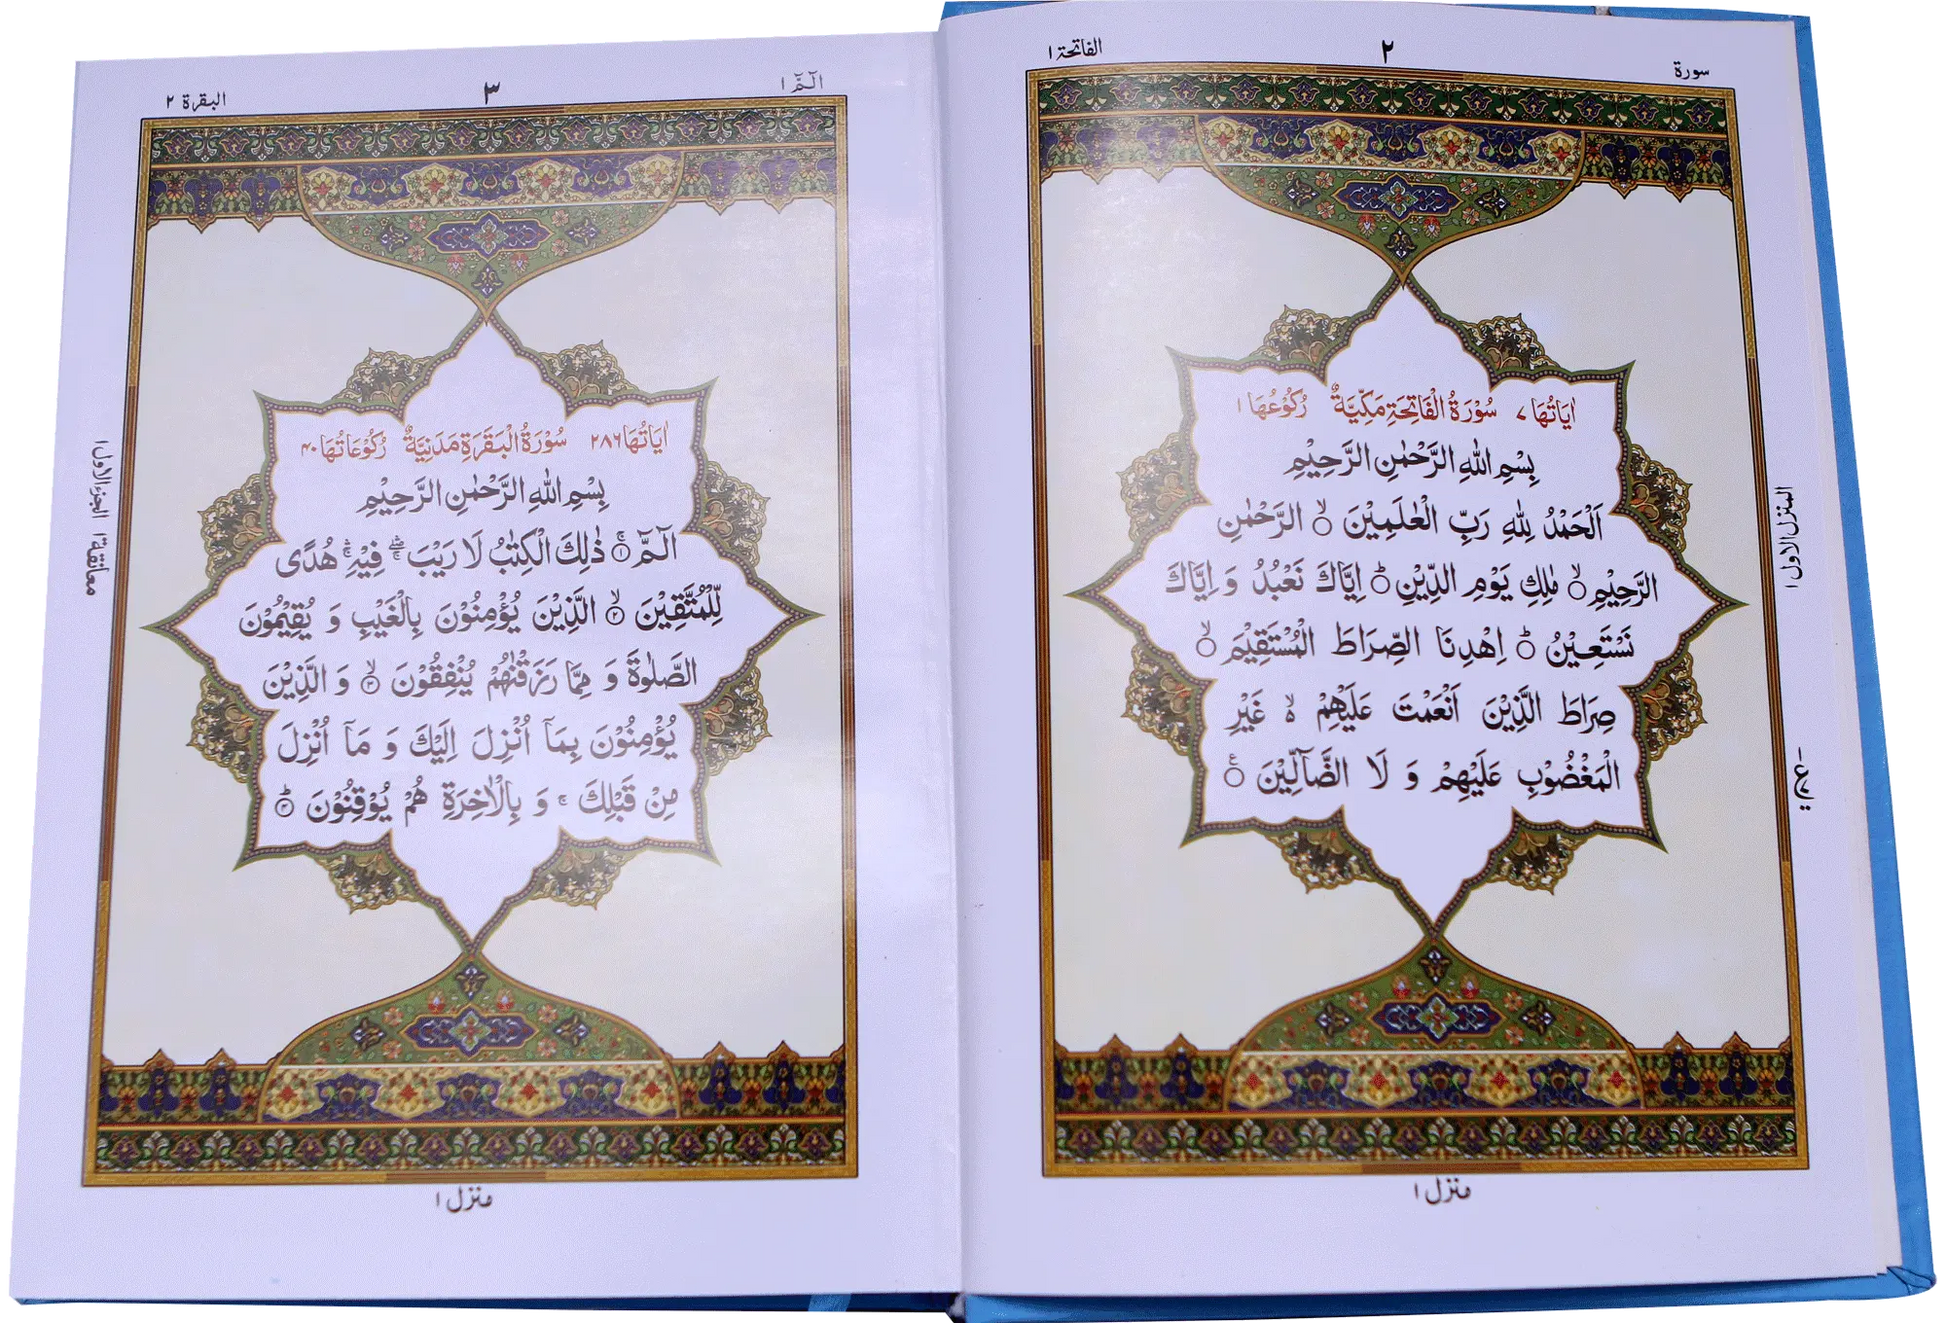 سورة
٢
الفاتحة ١
اٰيَاتُهَا ٧ سُوْرَةُ الْفَاتِحَةِ مَكِّيَّةٌ رُكُوْعُهَا ١
بِسْمِ اللهِ الرَّحْمٰنِ الرَّحِيْمِ
اَلْحَمْدُ لِلّٰهِ رَبِّ الْعٰلَمِيْنَ ۙ الرَّحْمٰنِ
الرَّحِيْمِ ۙ مٰلِكِ يَوْمِ الدِّيْنِ ؕ اِيَّاكَ نَعْبُدُ وَ اِيَّاكَ
نَسْتَعِيْنُ ؕ اِهْدِنَا الصِّرَاطَ الْمُسْتَقِيْمَ ۙ
صِرَاطَ الَّذِيْنَ اَنْعَمْتَ عَلَيْهِمْ ۙ۬ غَيْرِ
الْمَغْضُوْبِ عَلَيْهِمْ وَ لَا الضَّآلِّيْنَ
المنزل الاول ١
منزل ١
الٓمّٓ ١
٣
البقرة ٢
اٰيَاتُهَا ٢٨٦ سُوْرَةُ الْبَقَرَةِ مَدَنِيَّةٌ رُكُوْعَاتُهَا ٤٠
بِسْمِ اللهِ الرَّحْمٰنِ الرَّحِيْمِ
الٓمّٓ ۚ ١ ذٰلِكَ الْكِتٰبُ لَا رَيْبَ ۛۖ فِيْهِ ۛۚ هُدًى
لِّلْمُتَّقِيْنَ ۙ ٢ الَّذِيْنَ يُؤْمِنُوْنَ بِالْغَيْبِ وَ يُقِيْمُوْنَ
الصَّلٰوةَ وَ مِمَّا رَزَقْنٰهُمْ يُنْفِقُوْنَ ۙ ٣ وَ الَّذِيْنَ
يُؤْمِنُوْنَ بِمَآ اُنْزِلَ اِلَيْكَ وَ مَآ اُنْزِلَ
مِنْ قَبْلِكَ ۚ وَ بِالْاٰخِرَةِ هُمْ يُوْقِنُوْنَ ؕ ٤
معانقة ١ الجزء الاول ١
منزل ١